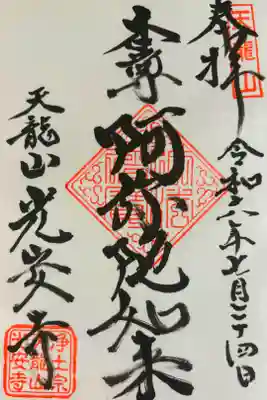 奉拝
天龍山
令和六年七月二十四日
本尊
阿弥陀如来
天龍山 光安寺
浄土宗
天龍山
光安寺